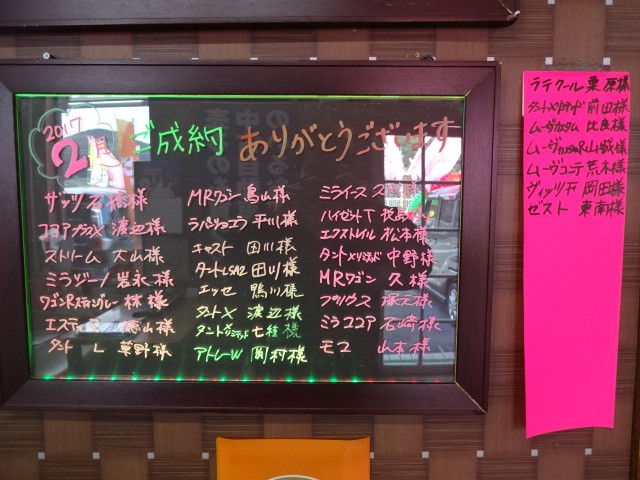 2017
2月 ご成約 ありがとうございます
ザッツ 様
ココアプラスX 渡辺様
ストリーム 大山様
ミラジーノ 岩永様
ワゴンRスティングレー 林様
エスティマ 山様
タント L 草野様
MRワゴン 鳥山様
ラパンショコラ 平川様
キャスト 田川様
タントLSA2 田川様
エッセ 鴨川様
タントX 渡辺様
タント 七種様
アトレーW 岡村様
ミライース 様
ハイゼットT 様
エクストレイル 松本様
タント 中野様
MRワゴン 久様
プリウス 塚元様
ミラココア 石崎様
モコ 山本様
ラテクール 栗原様
タントX 前田様
ムーヴカスタム 比良様
ムーヴカスタムR 山城様
ムーヴコンテ 荒木様
ヴィッツ 岡田様
ゼスト 東南様